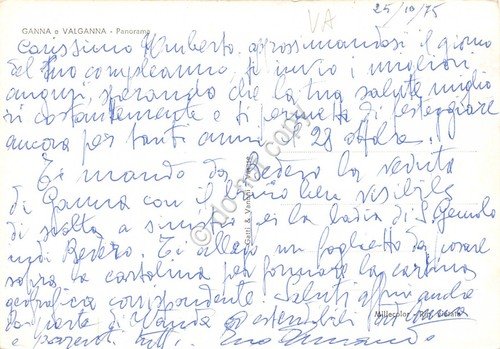 GANNA e VALGANNA - Panorama
VA
25/10/75
Carissimo Umberto, approssimandosi il giorno
del tuo compleanno, ti invio i migliori
auguri, sperando che la tua salute miglio
ri costantemente e ti permetta di festeggiare
ancora per tanti anni il 28 ottobre.
Ti mando da vedere la veduta
di Ganna con il bivio ben visibile
di svolta a sinistra per la badia di S. Gemolo
Bedero. Ti allego un foglietto da posare
sopra la cartolina per formare la cartina
geografica corrispondente. Saluti affini anche
da parte di Wanda estendibili ad
e parenti tutti. Tuo
Millecolor